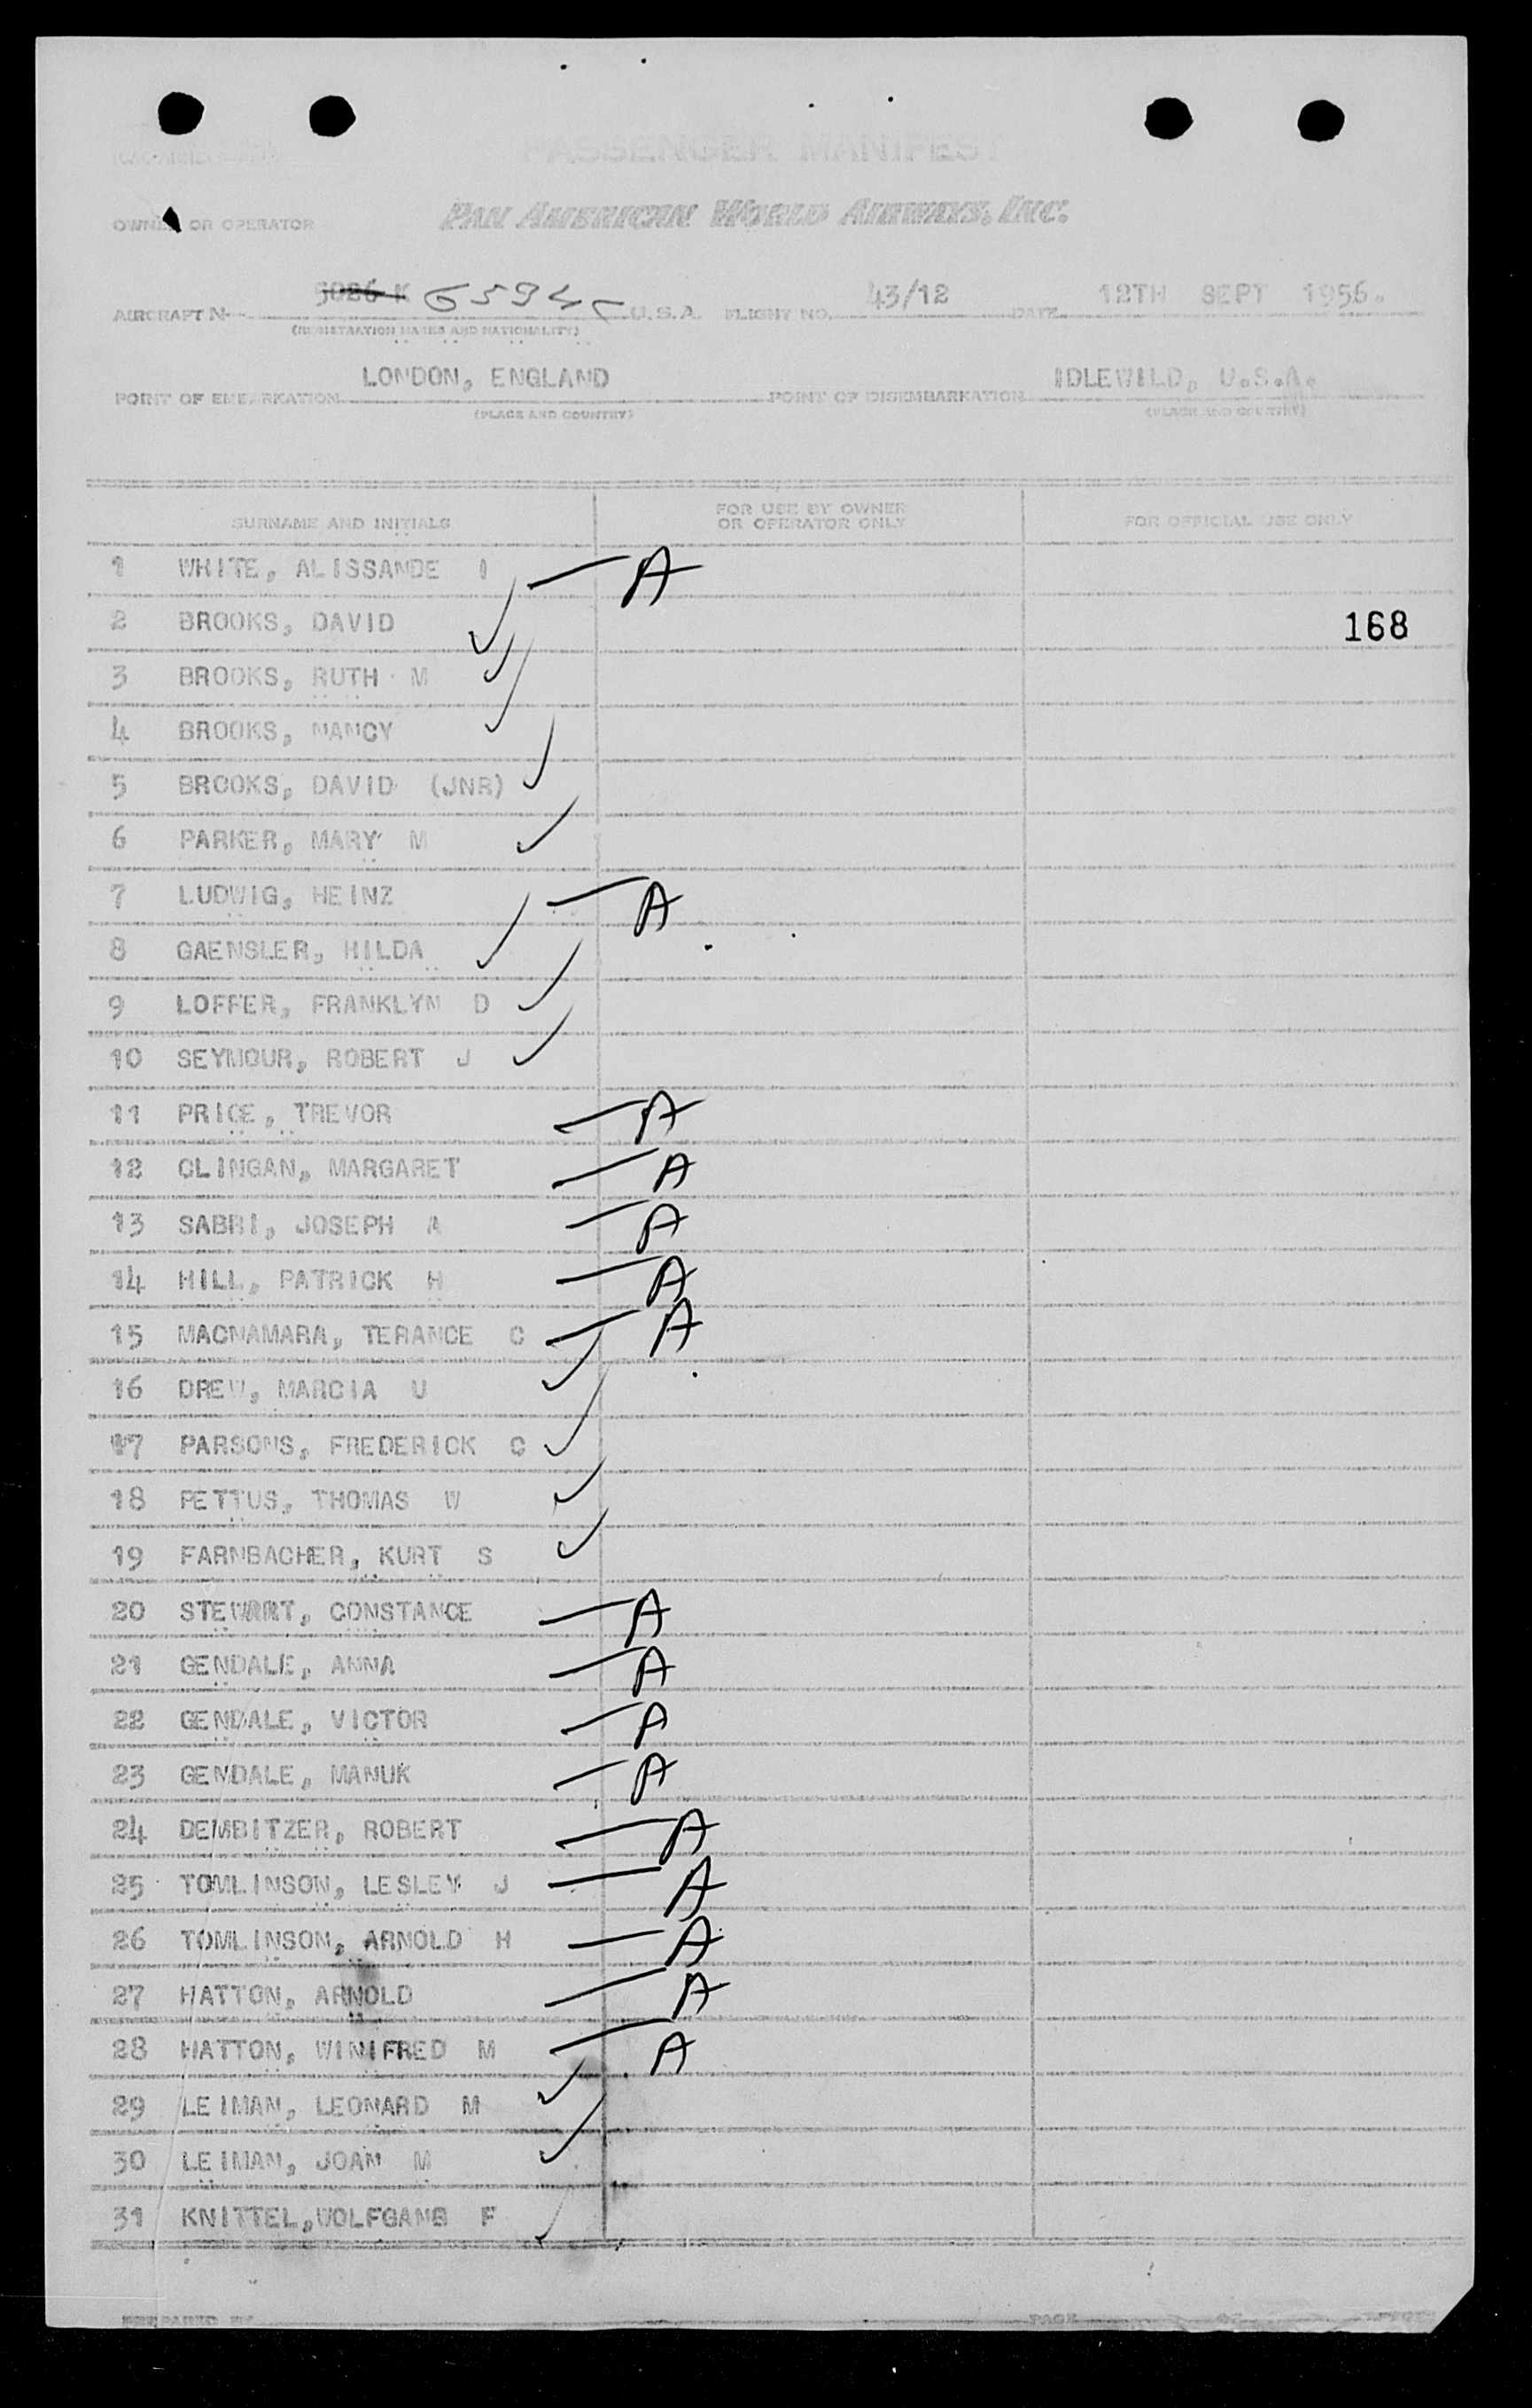 PASSENGER MANIFEST
OWNER OR OPERATOR PAN AMERICAN WORLD AIRWAYS, INC.
AIRCRAFT N 5026 K 6534C U.S.A. FLIGHT NO. 43/12 DATE 12TH SEPT 1956.
(REGISTRATION MARKS AND NATIONALITY)
POINT OF EMBARKATION LONDON, ENGLAND POINT OF DISEMBARKATION IDLEWILD, U.S.A.
(PLACE AND COUNTRY) (PLACE AND COUNTRY)
SURNAME AND INITIALS FOR USE BY OWNER OR OPERATOR ONLY FOR OFFICIAL USE ONLY
1 WHITE, ALISSANDE I — A
2 BROOKS, DAVID ✓ 168
3 BROOKS, RUTH M ✓
4 BROOKS, NANCY ✓
5 BROOKS, DAVID (JNR) ✓
6 PARKER, MARY M ✓
7 LUDWIG, HEINZ — A
8 GAENSLER, HILDA ✓
9 LOFFER, FRANKLYN D ✓
10 SEYMOUR, ROBERT J ✓
11 PRICE, TREVOR — A
12 CLINGAN, MARGARET — A
13 SABRI, JOSEPH A — A
14 HILL, PATRICK H — A
15 MACNAMARA, TERANCE C — A
16 DREW, MARCIA U ✓
17 PARSONS, FREDERICK C ✓
18 PETTUS, THOMAS W ✓
19 FARNBACHER, KURT S ✓
20 STEWART, CONSTANCE — A
21 GENDALE, ANNA — A
22 GENDALE, VICTOR — A
23 GENDALE, MANUK — A
24 DEMBITZER, ROBERT — A
25 TOMLINSON, LESLEY J — A
26 TOMLINSON, ARNOLD H — A
27 HATTON, ARNOLD — A
28 HATTON, WINIFRED M — A
29 LEIMAN, LEONARD M ✓
30 LEIMAN, JOAN M ✓
31 KNITTEL,WOLFGANG F ✓
PREPARED BY PAGE OF